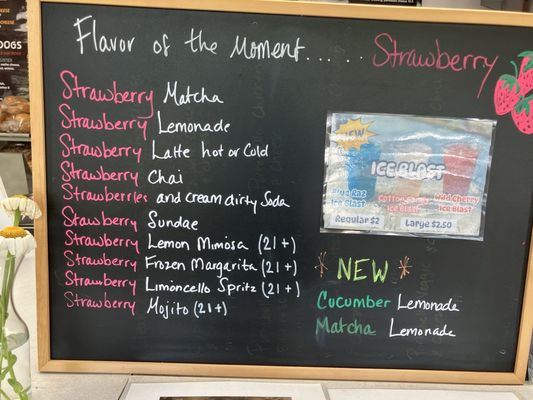 Flavor of the Moment...... Strawberry
Strawberry Matcha
Strawberry Lemonade
Strawberry Latte hot or Cold
Strawberry Chai
Strawberries and cream dirty Soda
Strawberry Sundae
Strawberry Lemon Mimosa (21+)
Strawberry Frozen Margarita (21+)
Strawberry Limoncello Spritz (21+)
Strawberry Mojito (21+)
NEW
ICE BLAST
Blue Raz Ice Blast
Cotton Candy Ice Blast
Wild Cherry Ice Blast
Regular $2 Large $2.50
* NEW *
Cucumber Lemonade
Matcha Lemonade
DOGS